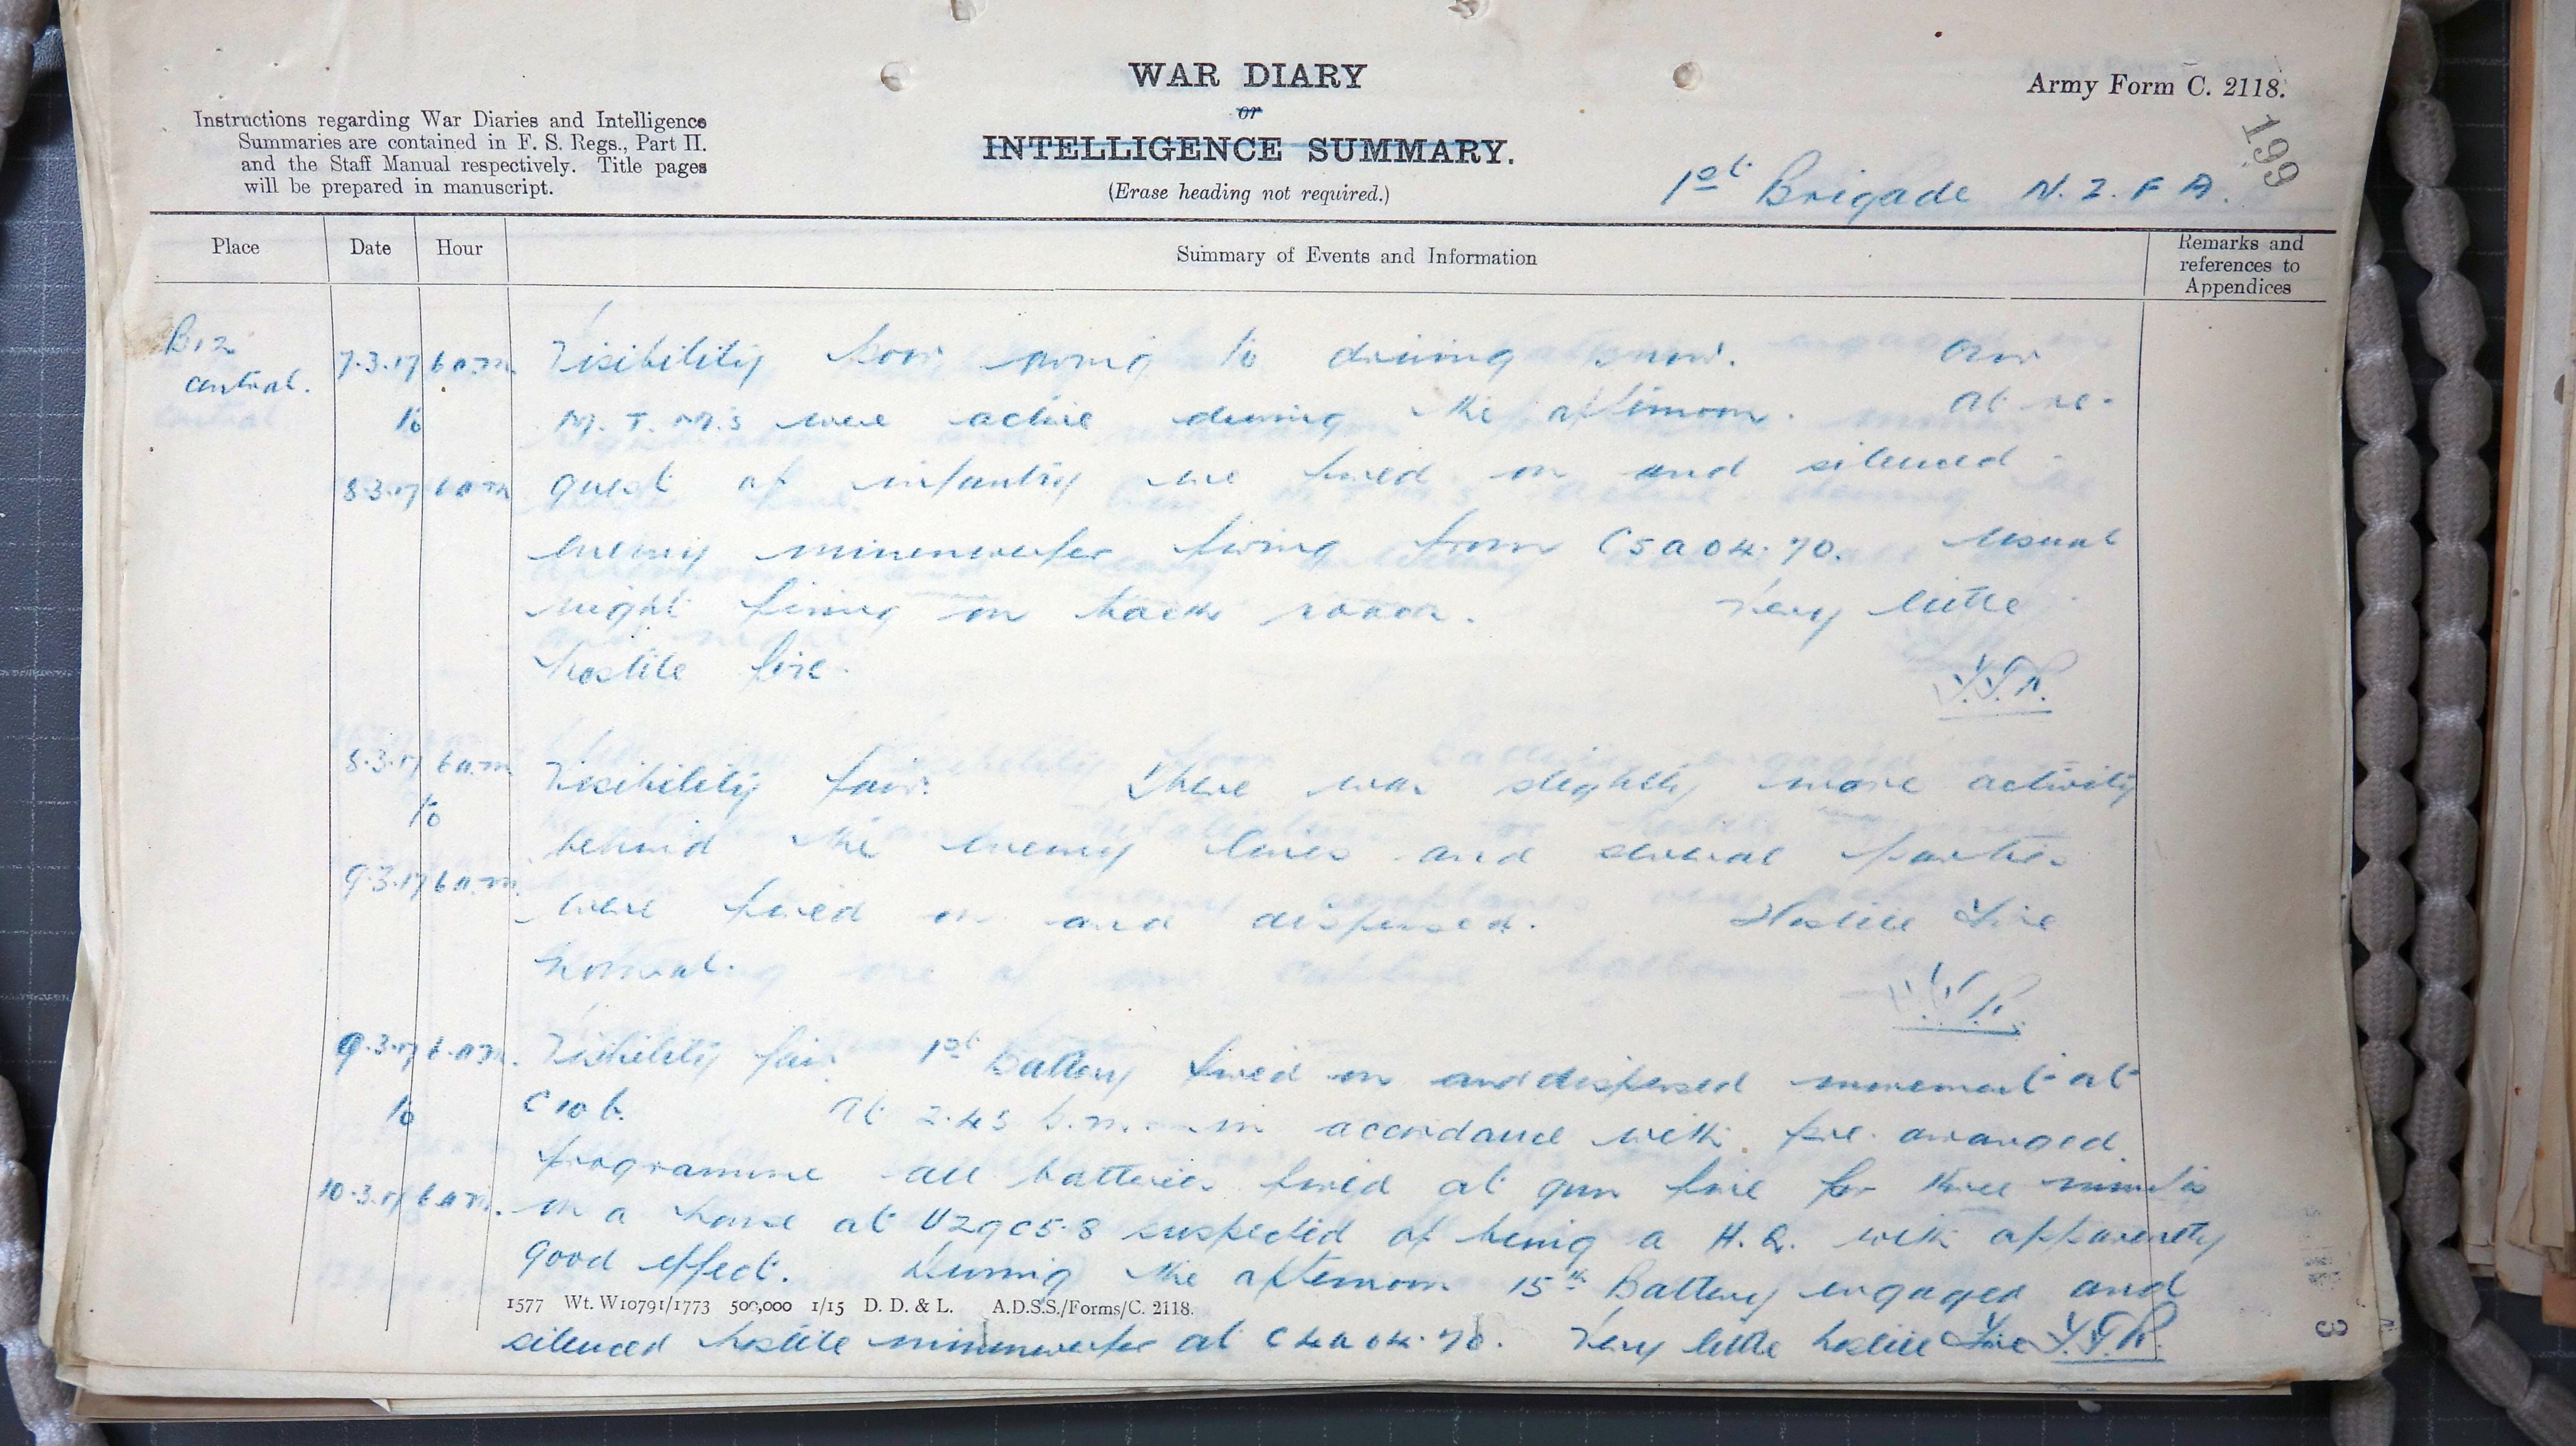 WAR DIARY
or
INTELLIGENCE SUMMARY.
(Erase heading not required.)
Army Form C. 2118.
199
Instructions regarding War Diaries and Intelligence
Summaries are contained in F. S. Regs., Part II.
and the Staff Manual respectively. Title pages
will be prepared in manuscript.
1st Brigade N. Z. F A.
Place Date Hour Summary of Events and Information Remarks and
references to
Appendices
B12 central. 7.3.17 6 a.m. Visibility poor owing to driving snow. Our
to M. T. M.s were active during the afternoon. At re-
8.3.17 6 a.m. quest of infantry we fired on and silenced
enemy minenwerfer firing from C5 a 04.70. Usual
night firing on back roads. Very little
hostile fire.
8.3.17 6 a.m. Visibility fair. There was slightly more activity
to behind the enemy lines and several parties
9.3.17 6 a.m. were fired on and dispersed. Hostile Fire
Normal.
9.3.17 6 a.m. Visibility fair 1st Battery fired on and dispersed movement at
to C10 b. At 2.45 p.m. in accordance with pre-arranged
programme all batteries fired at gun fire for three minutes
10.3.17 6 a.m. on a house at U29 c 5.8 suspected of being a H.Q. with apparently
good effect. During the afternoon 15th Battery engaged and
1577 Wt. W10791/1773 500,000 1/15 D. D. & L. A.D.S.S./Forms/C. 2118.
silenced hostile minenwerfer at C4 a 04.70. Very little hostile Fire
3